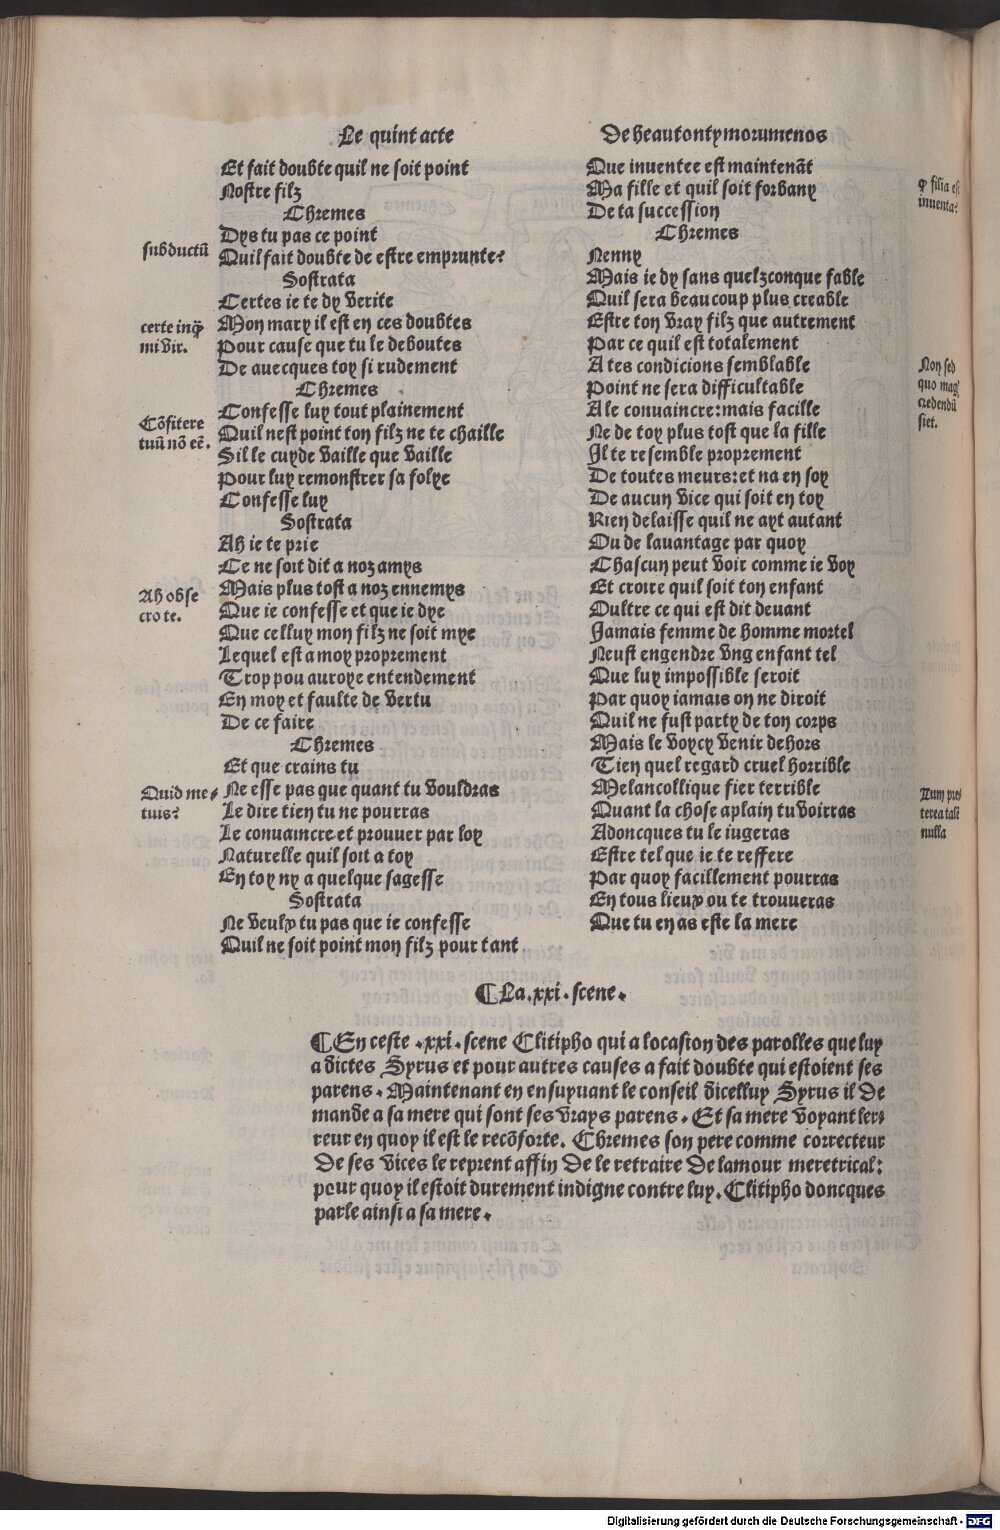 Le quint acte
Et fait doubte quil ne soit point
Nostre filz
Chremes
Dys tu pas ce point
subductū
Quil fait doubte de estre emprunte?
Sostrata
Certes ie te dy verite
certe inq̄
mi vir.
Mon mary il est en ces doubtes
Pour cause que tu le deboutes
De auecques toy si rudement
Chremes
Confesse luy tout plainement
Cōfitere
tuū nō eē.
Quil nest point ton filz ne te chaille
Sil le cuyde vaille que vaille
Pour luy remonstrer sa folye
Confesse luy
Sostrata
Ah ie te prie
Ce ne soit dit a noz amys
Ah obse
cro te.
Mais plus tost a noz ennemys
Que ie confesse et que ie dye
Que celluy mon filz ne soit mye
Lequel est a moy proprement
Trop pou auroye entendement
En moy et faulte de vertu
De ce faire
Chremes
Et que crains tu
Quid me-
tuis?
Ne esse pas que quant tu vouldras
Le dire tien tu ne pourras
Le conuaincre et prouuer par loy
Naturelle quil soit a toy
En toy ny a quelque sagesse
Sostrata
Ne veulx tu pas que ie confesse
Quil ne soit point mon filz pour tant
De heautontymorumenos
Que inuentee est maintenāt
ꝙ filia est
inuenta?
Ma fille et quil soit forbany
De ta succession
Chremes
Nenny
Mais ie dy sans quelzconque fable
Quil sera beaucoup plus creable
Estre ton vray filz que autrement
Par ce quil est totalement
Non sed
quo mag
credendū
siet.
A tes condicions semblable
Point ne sera difficultable
A le conuaincre: mais facille
Ne de toy plus tost que la fille
Il te resemble proprement
De toutes meurs: et na en soy
De aucun vice qui soit en toy
Rien delaisse quil ne ayt autant
Ou de lauantage par quoy
Chascun peut voir comme ie voy
Et croire quil soit ton enfant
Oultre ce qui est dit deuant
Jamais femme de homme mortel
Neust engendre vng enfant tel
Que luy impossible seroit
Par quoy iamais on ne diroit
Quil ne fust party de ton corps
Mais le voycy venir dehors
Tien quel regard cruel horrible
Melancollique fier terrible
Tum pre
terea tale
nulla
Quant la chose aplain tu voirras
Adoncques tu le iugeras
Estre tel que ie te reffere
Par quoy facillement pourras
En tous lieux ou te trouueras
Que tu en as este la mere
¶ La .xxi. scene.
¶ En ceste .xxi. scene Clitipho qui a locasion des parolles que luy
a dictes Syrus et pour autres causes a fait doubte qui estoient ses
parens. Maintenant en ensuyuant le conseil dicelluy Syrus il de
mande a sa mere qui sont ses vrays parens. Et sa mere voyant ler-
reur en quoy il est le recōforte. Chremes son pere comme correcteur
de ses vices le reprent affin de le retraire de lamour meretrical:
pour quoy il estoit durement indigne contre luy. Clitipho doncques
parle ainsi a sa mere.
Digitalisierung gefördert durch die Deutsche Forschungsgemeinschaft - DFG